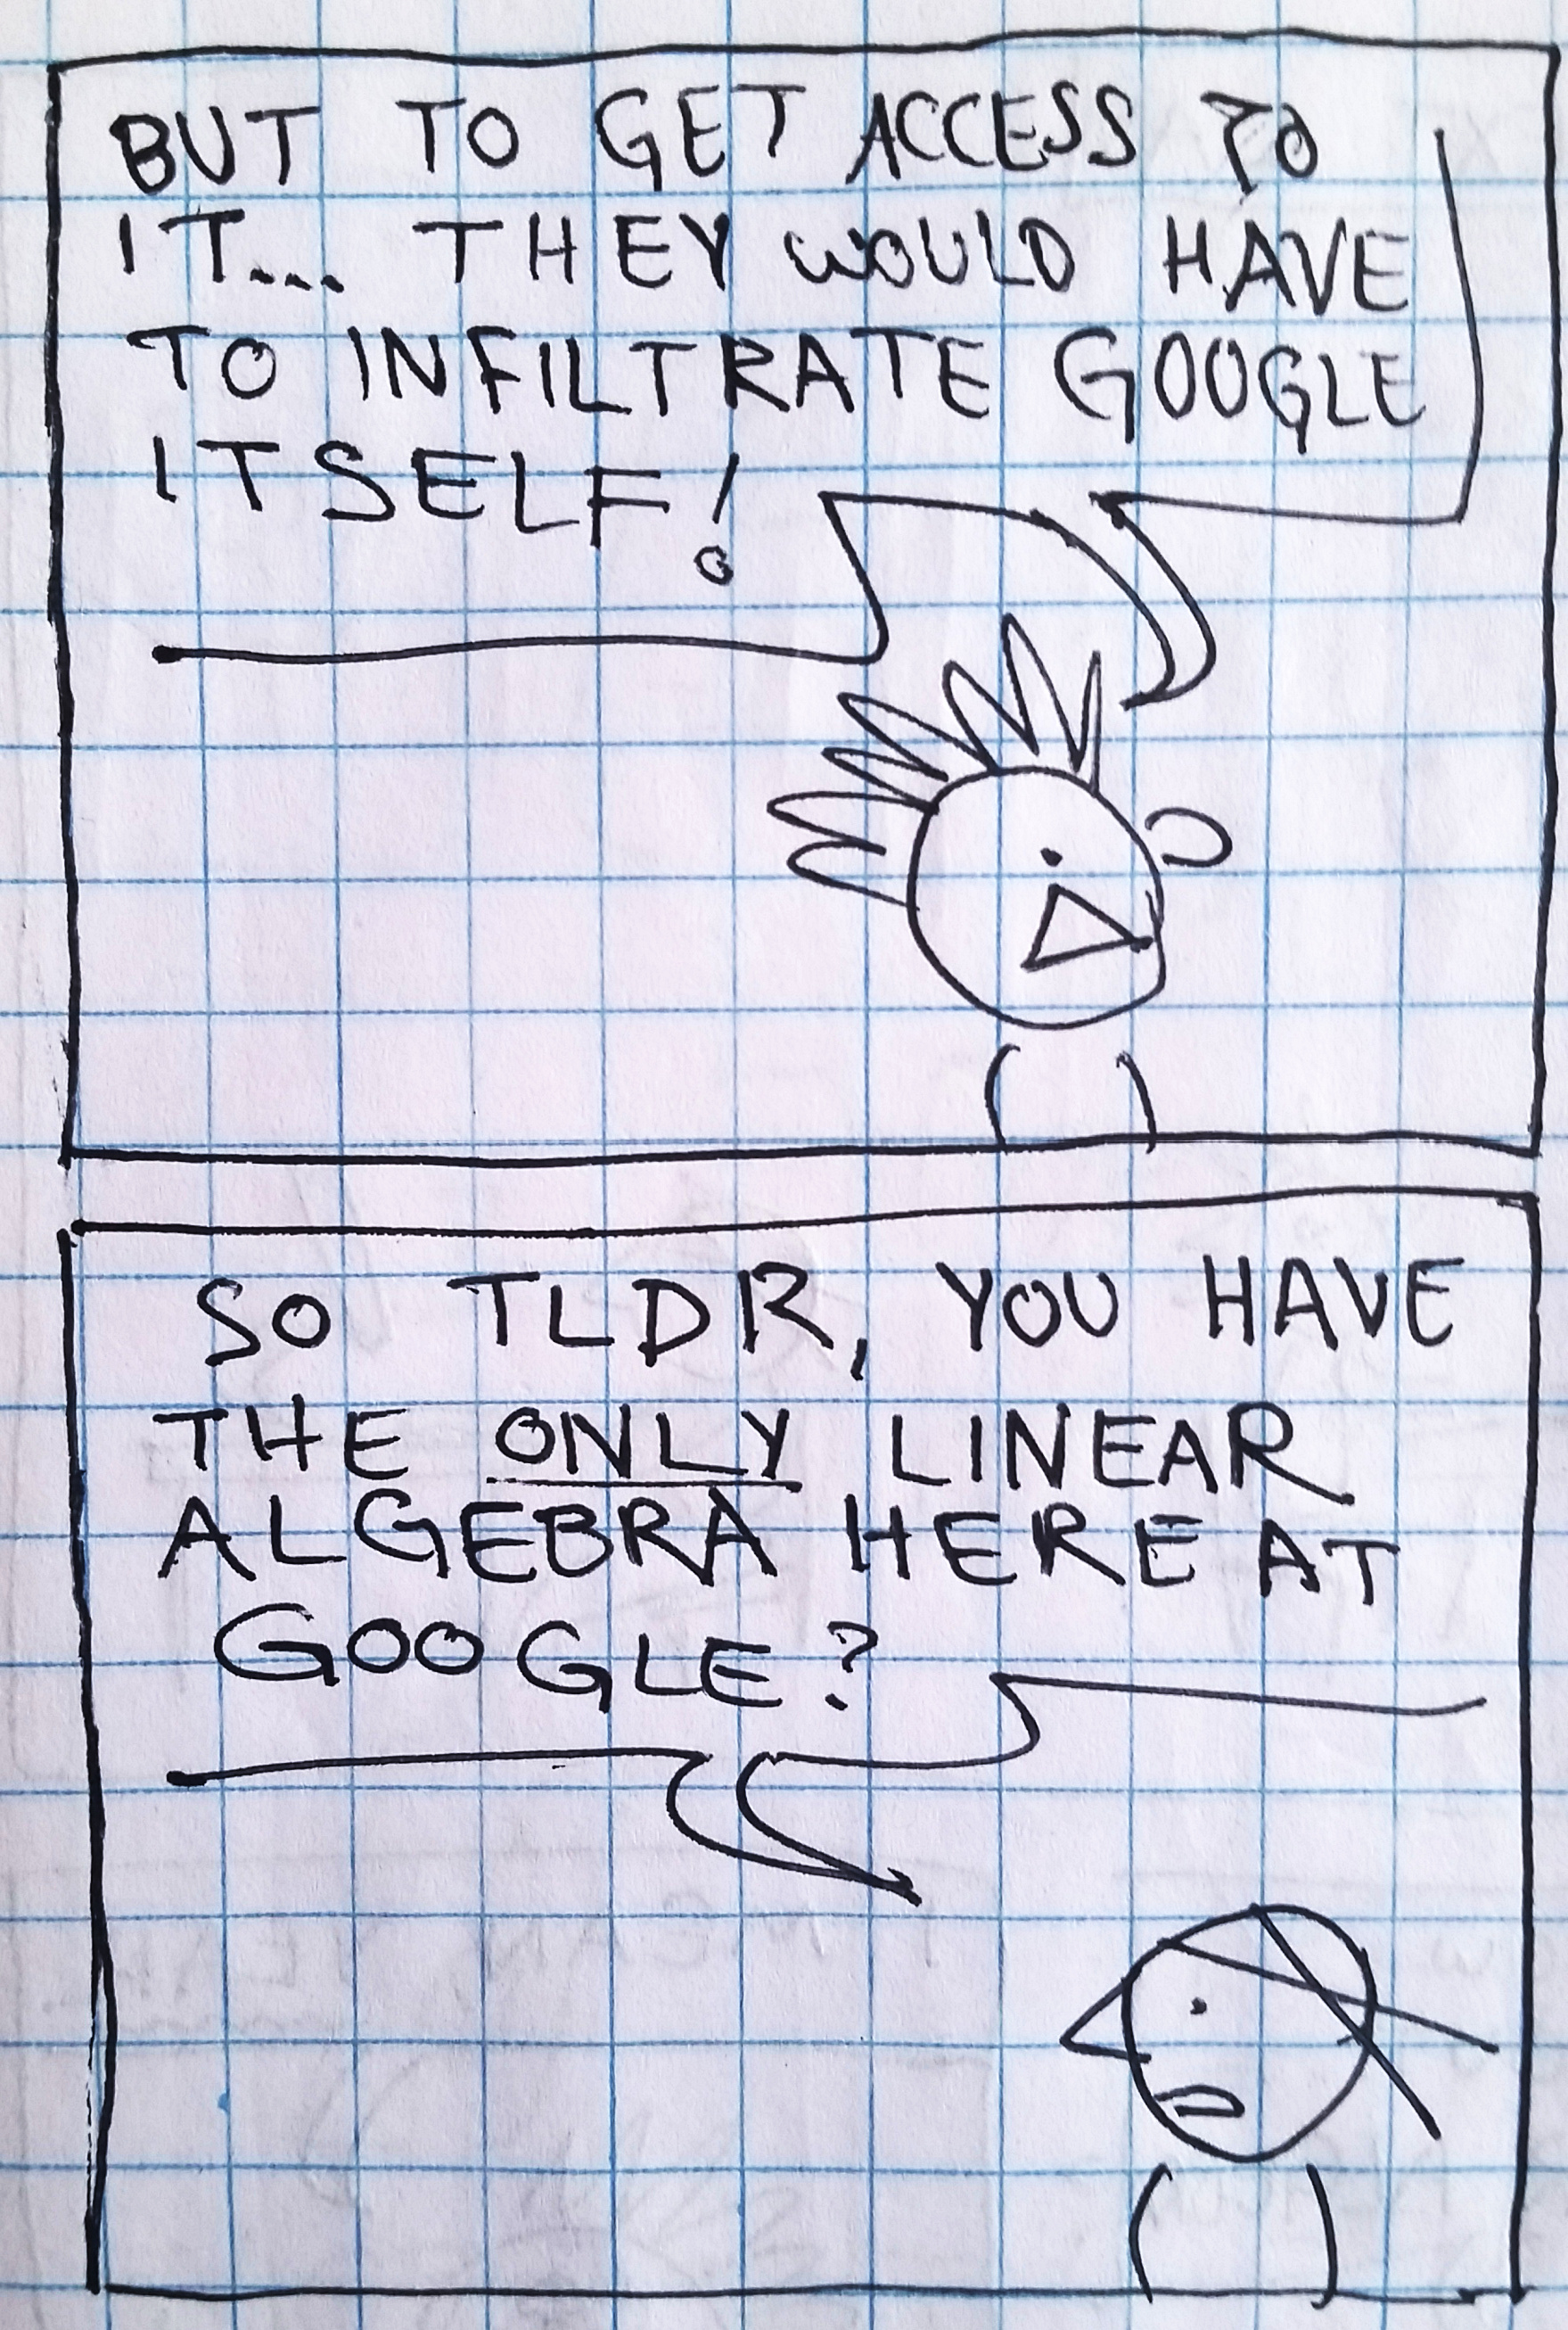 BUT TO GET ACCESS TO
IT... THEY WOULD HAVE
TO INFILTRATE GOOGLE
ITSELF!
SO TLDR, YOU HAVE
THE ONLY LINEAR
ALGEBRA HERE AT
GOOGLE?